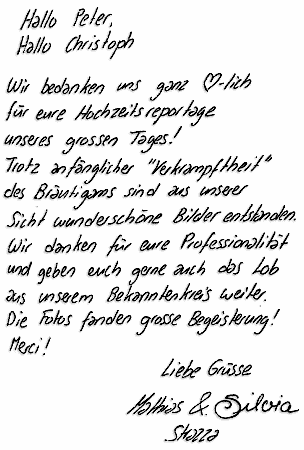 Hallo Peter,
Hallo Christoph
Wir bedanken uns ganz ♡-lich
für eure Hochzeitsreportage
unseres grossen Tages!
Trotz anfänglicher "Verkrampftheit"
des Bräutigams sind aus unserer
Sicht wunderschöne Bilder entstanden.
Wir danken für eure Professionalität
und geben euch gerne auch das Lob
aus unserem Bekanntenkreis weiter.
Die Fotos fanden grosse Begeisterung!
Merci!
Liebe Grüsse
Mathias & Silvia